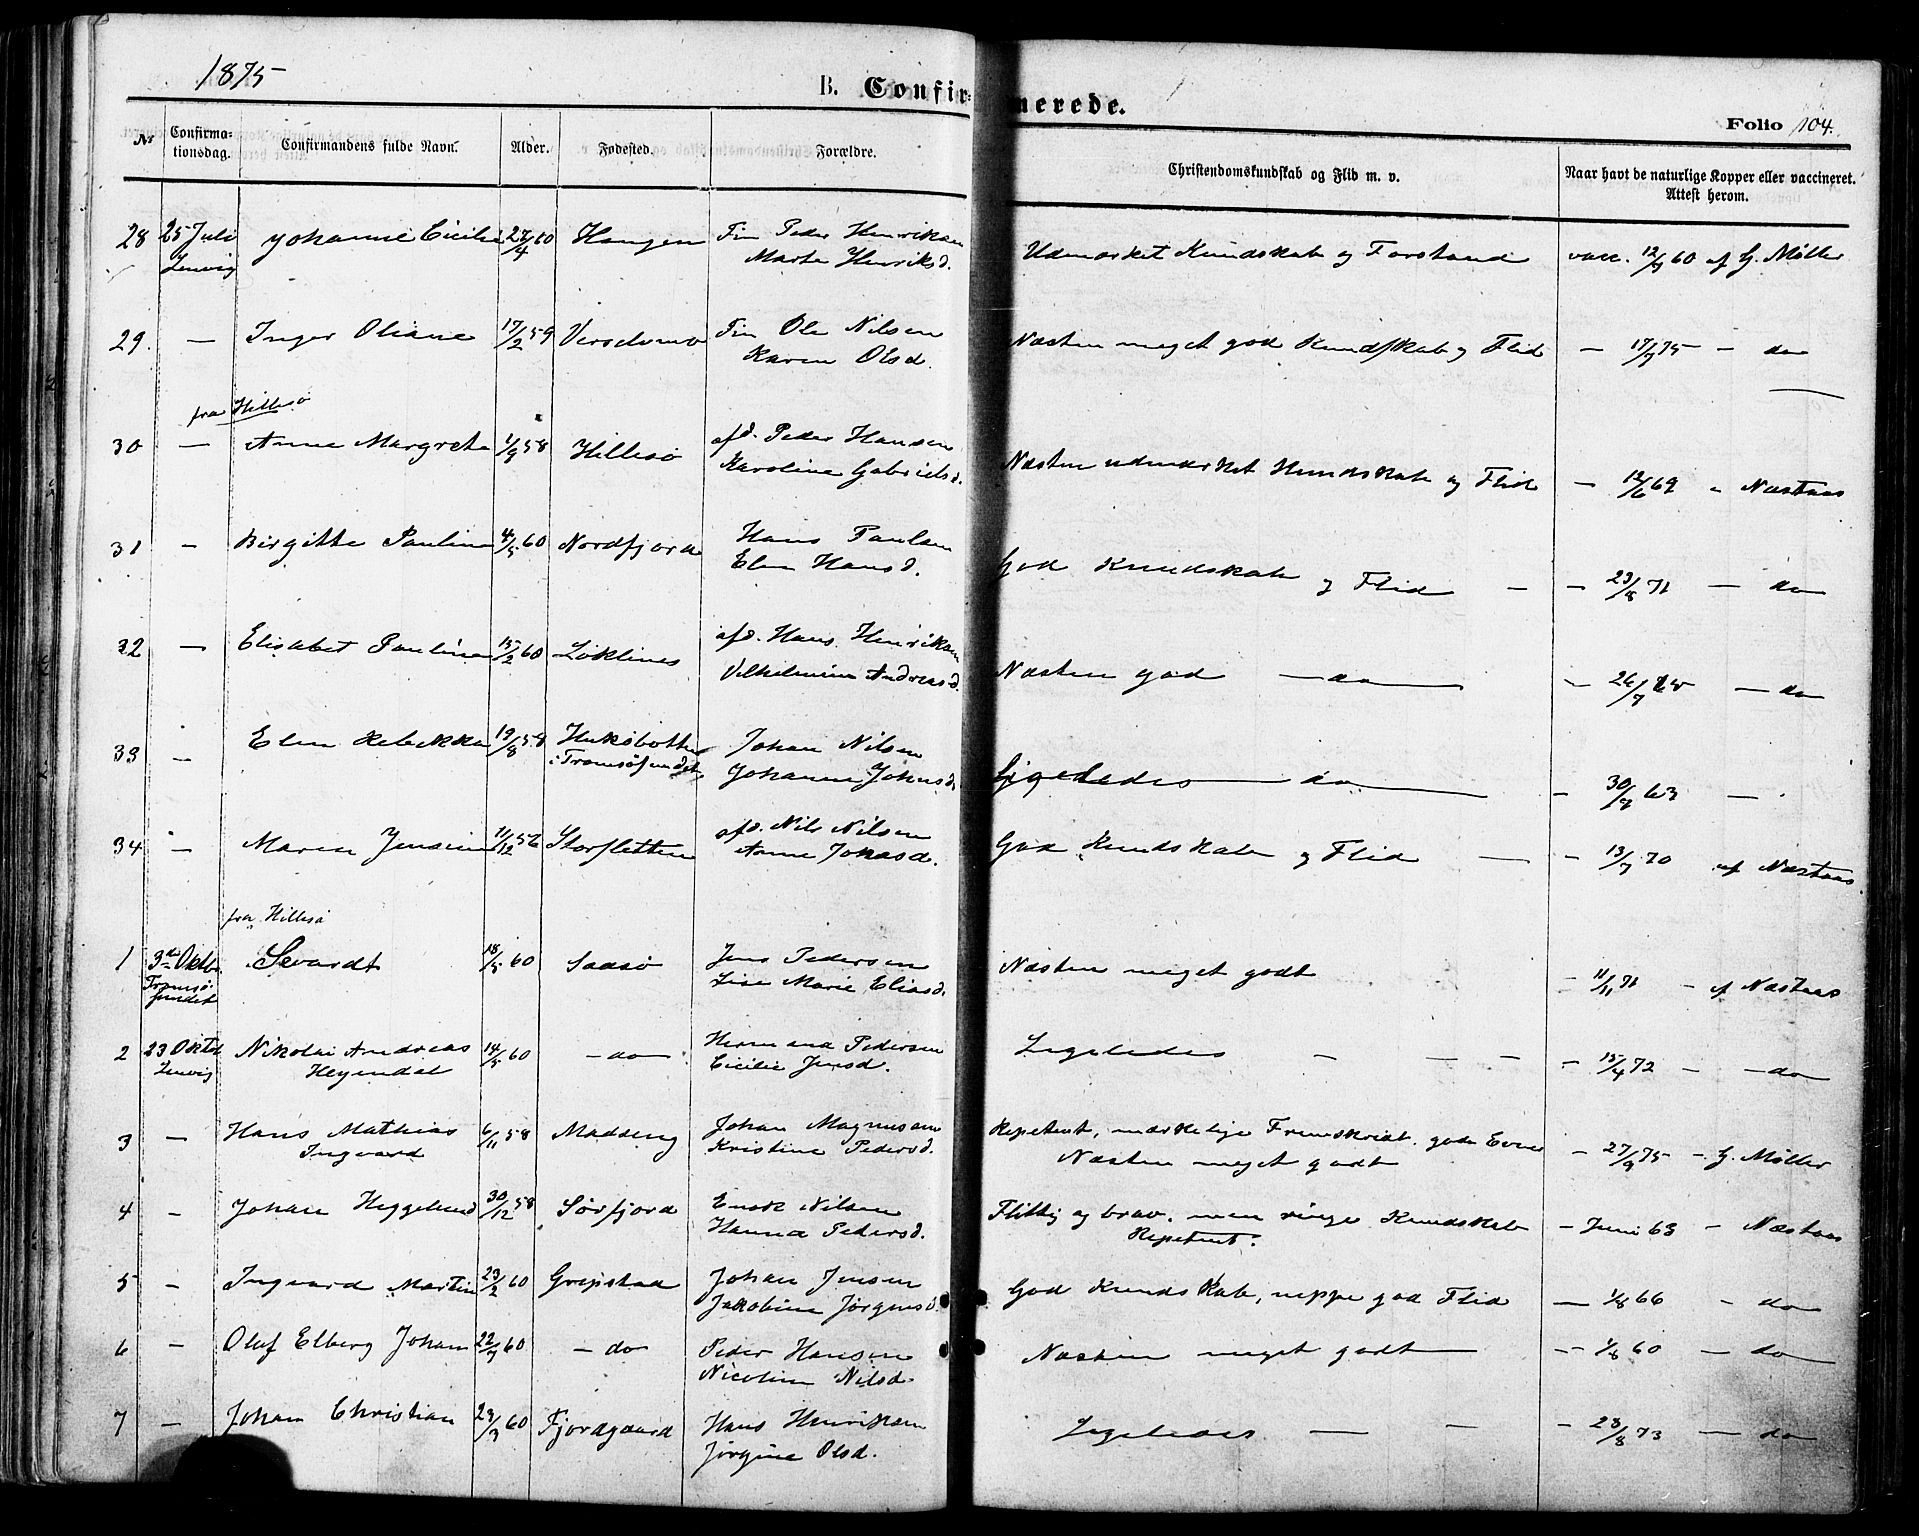 1875
B. Confirmerede.
Folio 104.
Nr
Confirma-
tionsdag.
Confirmandens fulde Navn.
Alder.
Fødested.
Forældre.
Christendomskundskab og Flid m. v.
Naar havt de naturlige Kopper eller vaccineret.
Attest herom.
28 25 Juli Johanne Cicilie 27/4 60 Haugen Fin Peder Henriksen
Lenvig Marta Henriksd.
Udmærket Kundskab og Forstand vacc. 12/9 60 af G. Møller
29. — Inger Oliane 17/2 59 Fin Ole Nilsen
Karen Olsd.
Næsten meget god Kundskab og Flid — 17/7 75 — do
fra Hillesø
30 — Anne Margrete 1/9 58 Hillesø afd. Peder Hansen
Karoline Gabrielsd.
Næsten udmærket Kundskab og Flid — 12/6 69 " Næstaas
31 — Birgitte Pauline 4/5 60 Nordfjord Hans Paulsen
Elen Hansd.
God Kundskab og Flid — — 23/8 71 — do
32 — Elisabet Pauline 15/2 60 Løklines afd. Hans Henriksen
Vilhelmine Andreasd.
Næsten god — do — — 26/7 — do
33 — Elen Rebekka 19/8 58 Johan Nilsen
i Tromsøsundet Johanne Johnsd.
Ligeledes — do — — 30/7 63 —
34 — Maren Jensine 11/12 56 Storsletten afd. Nils Nilsen
Anne Johasd.
God Kundskab og Flid — — 13/7 70 af Næstaas
fra Hillesø
1 3die Oktbr. Sevardt 18/5 60 Saasø Jens Pedersen
Tromsø- Lise Marie Eliasd.
sundet
Næsten meget godt — 11/11 71 — af Næstaas
2 23 Oktob Nikolai Andreas 14/5 60 — do Hermana Pedersen
Lenvig Heyendal Cicilie Jensd.
Ligeledes — — — — 15/4 72 — — do
3 — Hans Mathias 6/11 58 Madseng Johan Magnusen
Ingvard Kristine Pedersd.
Repetent, mærkelige Fremskridt, gode Evner
Næsten meget godt — 27/9 75 — G. Møller
4 — Johan Heggelund 30/12 58 Sørfjord Enok Nilsen
Hanna Pedersd.
Flittig og brav, men ringe Kundskab — Juni 63 — Næstaas
Repetent.
5 — Ingvard Martin 23/2 60 Grepstad Johan Jensen
Jakobine Jørgensd.
God Kundskab, neppe god Flid — 1/8 66 — do
6 — Oluf Elberg Johan 22/7 60 — do Peder Hansen
Nicoline Nilsd.
Næsten meget godt — — 1/8 60 — do
7 — Johan Christian 23/3 60 Fjordgaard Hans Henriksen
Jørgine Olsd.
Ligeledes — — — 23/8 73 — do